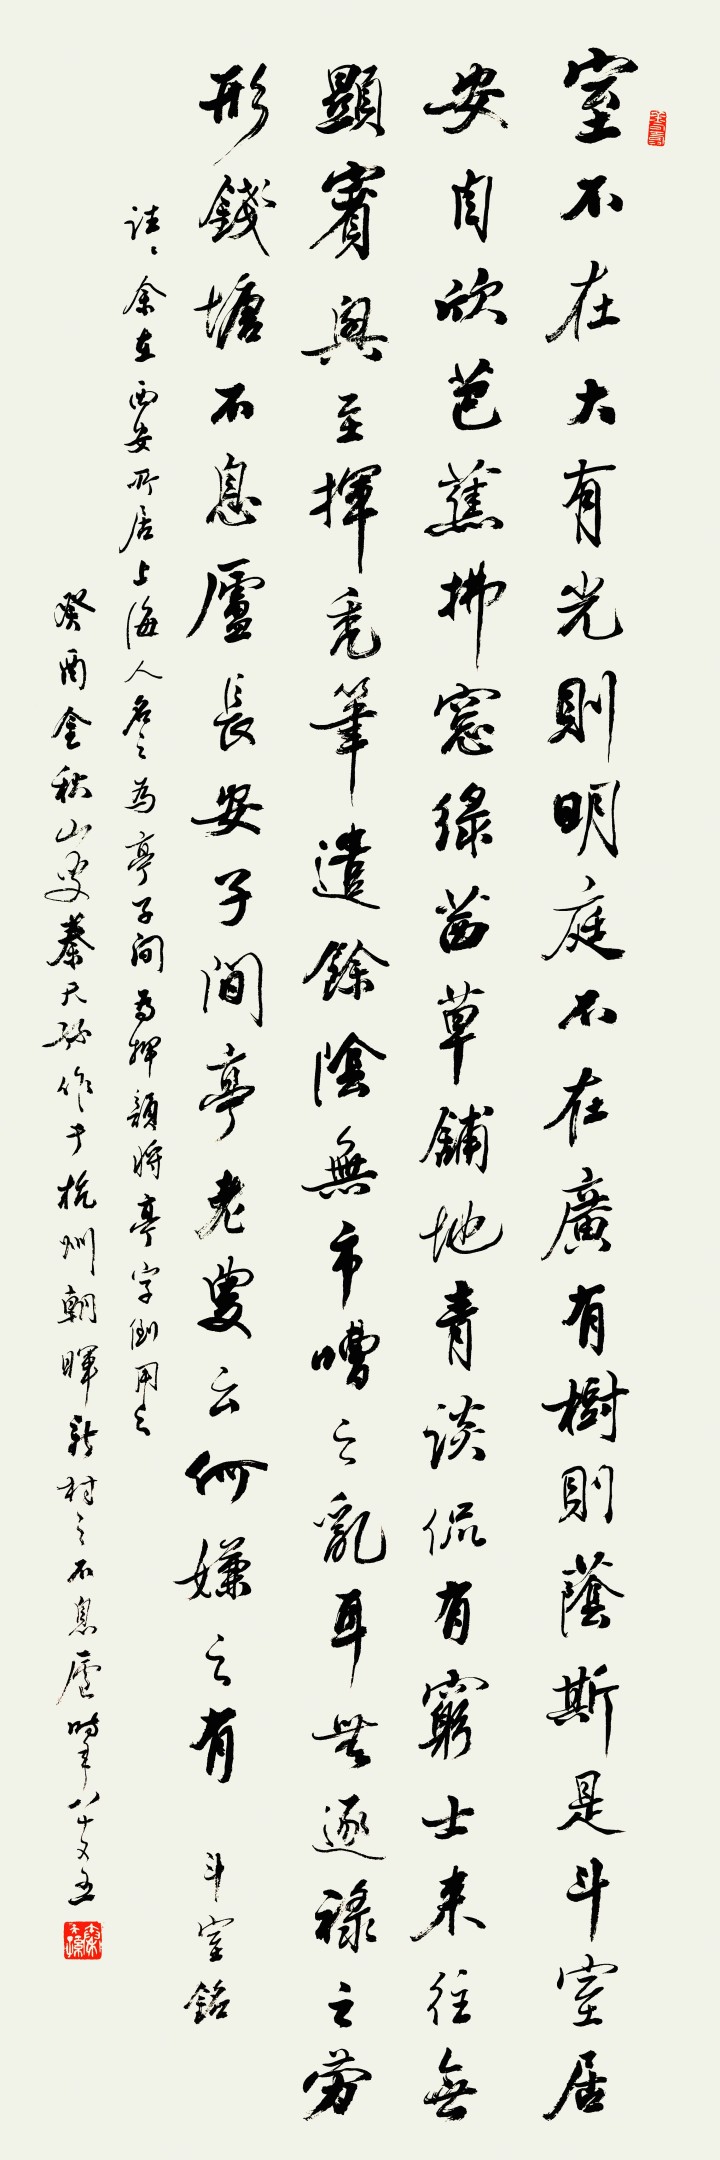 室不在大有光則明庭不在廣有樹則蔭斯是斗室居
安自欣芭蕉拂窓綠茵草鋪地青談侃有窮士來往無
顯賓興至揮禿筆遣餘陰無市嘈之亂耳無逐祿之勞
形錢塘不息廬長安子間亭老叟云何嫌之有
斗室銘
註:余在西安所居上海人名之為亭子間為押韻將亭字倒用之
癸酉金秋山叟秦天孫作于杭州朝暉新村之不息廬時年八十又五